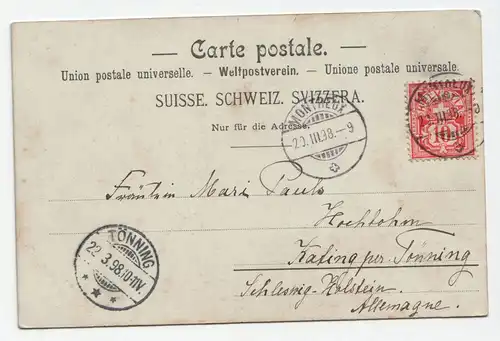 — Carte postale. —
Union postale universelle. – Weltpostverein. – Unione postale universale.
SUISSE. SCHWEIZ. SVIZZERA.
Nur für die Adresse.
MONTREUX
20.III.98.–9
MONTREUX
20.III.98.–9
Fräulein Mari Pauls
Hochlohm
Kating per Tönning
Schleswig-Holstein.
Allemagne.
TÖNNING
22.3.98.10-11V.